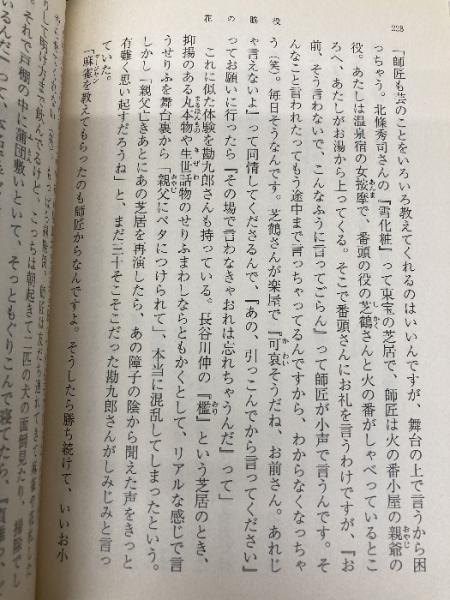 役の脇花
228
「師匠も芸のことをいろいろ教えてくれるのはいいんですが、舞台の上で言うから困
っちゃう。北條秀司さんの『雪化粧』って東宝の芝居で、師匠は火の番小屋の親爺の
役。あたしは温泉宿の女按摩で、番頭の役の芝鶴さんと火の番がしゃべっているとこ
ろへ、あたしがお湯から上ってくる。そこで番頭さんにお礼を言うわけですが、『お
前、そう言わないで、こんなふうに言ってごらん』って師匠が小声で言うんです。そ
んなこと言われたってもう途中まで言っちゃってるんですから、わからなくなっちゃ
う（笑）。毎日そうなんです。芝鶴さんが楽屋で『可哀そうだね、お前さん。あれじ
ゃ言えないよ』って同情してくださるんで、『あの、引っこんでから言ってください』
ってお願いに行ったら『その場で言わなきゃおれは忘れちゃうんだ』って」
これに似た体験を勘九郎さんも持っている。長谷川伸の『檻』という芝居のとき、
抑揚のある丸本物や生世話物のせりふまわしならともかくとして、リアルな感じで言
うせりふを舞台裏から、親父にベタにつけられて、本当に混乱してしまったという。
しかし「親父亡きあとにあの芝居を再演したら、あの障子の陰から聞えた声をきっと
有難く思い起すだろうね」と、まだ三十そこそこだった勘九郎さんがしみじみと言っ
ていた。
「麻雀を教えてもらったのも師匠からなんですよ。そうしたら勝ち続けて、いいお小
して明け方まで飲んでるけど、こっちは朝起きて二匹の犬の面倒見たり、
それで戸棚の中に蒲団敷いといて、そっともぐりこんで寝てたら、